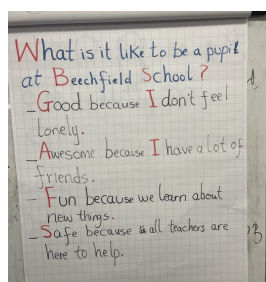 What is it like to be a pupil
at Beechfield School?
_Good because I don't feel
lonely.
_Awesome because I have a lot of
friends.
- Fun because we learn about
new things.
_Safe because all teachers are
here to help.